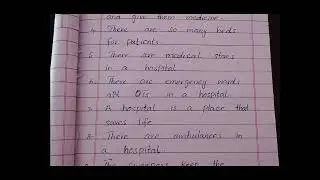 and give them medicine.
4. There are so many beds
for patients
5. There are medical stores
in a hospital.
6. There are emergency wards
and OTs in a hospital.
7. A hospital is a place that
saves life.
8. There are ambulances in
a hospital.
9. The sweepers keep the